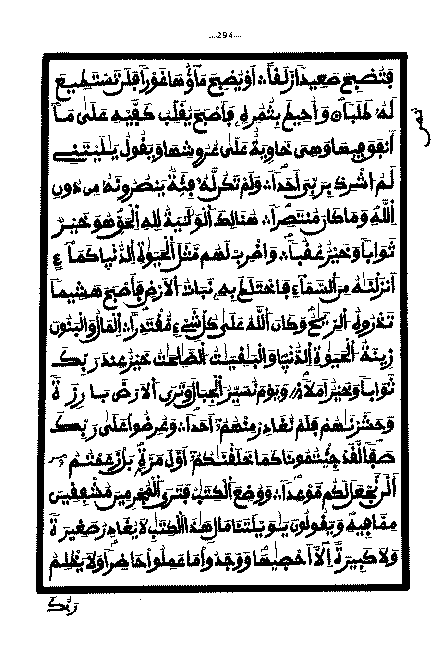 ...294...
فَتُصْبِحَ صَعِيداً زَلَقاً ۞ اَوْ يُصْبِحَ مَاؤُهَا غَوْراً فَلَن تَسْتَطِيعَ
لَهُ طَلَباً ۞ وَأُحِيطَ بِثُمُرِهِ فَأَصْبَحَ يُقَلِّبُ كَفَّيْهِ عَلَىٰ مَآ
أَنفَقَ فِيهَا وَهِيَ خَاوِيَةٌ عَلَىٰ عُرُوشِهَا وَيَقُولُ يَٰلَيْتَنِے
لَمُ اشْرِكْ بِرَبِّيَ أَحَداً ۞ وَلَمْ تَكُن لَّهُ فِئَةٌ يَنصُرُونَهُ مِن دُونِ
اِللَّهِ وَمَا كَانَ مُنتَصِراً ۞ هُنَالِكَ اَلْوَلَٰيَةُ لِلهِ الْحَقِّ هُوَ خَيْرٌ
ثَوَاباً وَخَيْرٌ عُقُباً ۞ وَاضْرِبْ لَهُم مَّثَلَ اَلْحَيَوٰةِ اِلدُّنْيَا كَمَآءٍ
اَنزَلْنَٰهُ مِنَ اَلسَّمَآءِ فَاخْتَلَطَ بِهِ نَبَاتُ اُلَارْضِ فَأَصْبَحَ هَشِيماً
تَذْرُوهُ اُلرِّيَٰحُ وَكَانَ اَللَّهُ عَلَىٰ كُلِّ شَےْءٍ مُّقْتَدِراً ۞ اِلْمَالُ وَالْبَنُونَ
زِينَةُ اُلْحَيَوٰةِ اِلدُّنْيَا وَالْبَٰقِيَٰتُ اُلصَّٰلِحَٰتُ خَيْرٌ عِندَ رَبِّكَ
ثَوَاباً وَخَيْرٌ اَمَلاً ۞ وَيَوْمَ نُسَيِّرُ اُلْجِبَالَ وَتَرَى اَلَارْضَ بَارِزَةً
وَحَشَرْنَٰهُمْ فَلَمْ نُغَادِرْ مِنْهُمُ أَحَداً ۞ وَعُرِضُوا عَلَىٰ رَبِّكَ
صَفّاً لَّقَدْ جِئْتُمُونَا كَمَا خَلَقْنَٰكُمُ أَوَّلَ مَرَّةٍ بَلْ زَعَمْتُمُ
أَلَّن نَّجْعَلَ لَكُم مَّوْعِداً ۞ وَوُضِعَ اَلْكِتَٰبُ فَتَرَى اَلْمُجْرِمِينَ مُشْفِقِينَ
مِمَّا فِيهِ وَيَقُولُونَ يَٰوَيْلَتَنَا مَالِ هَٰذَا اَلْكِتَٰبِ لَا يُغَادِرُ صَغِيرَةً
وَلَا كَبِيرَةً اِلَّآ أَحْصَيٰهَا وَوَجَدُوا مَا عَمِلُوا حَاضِراً وَلَا يَظْلِمُ
رَبُّكَ